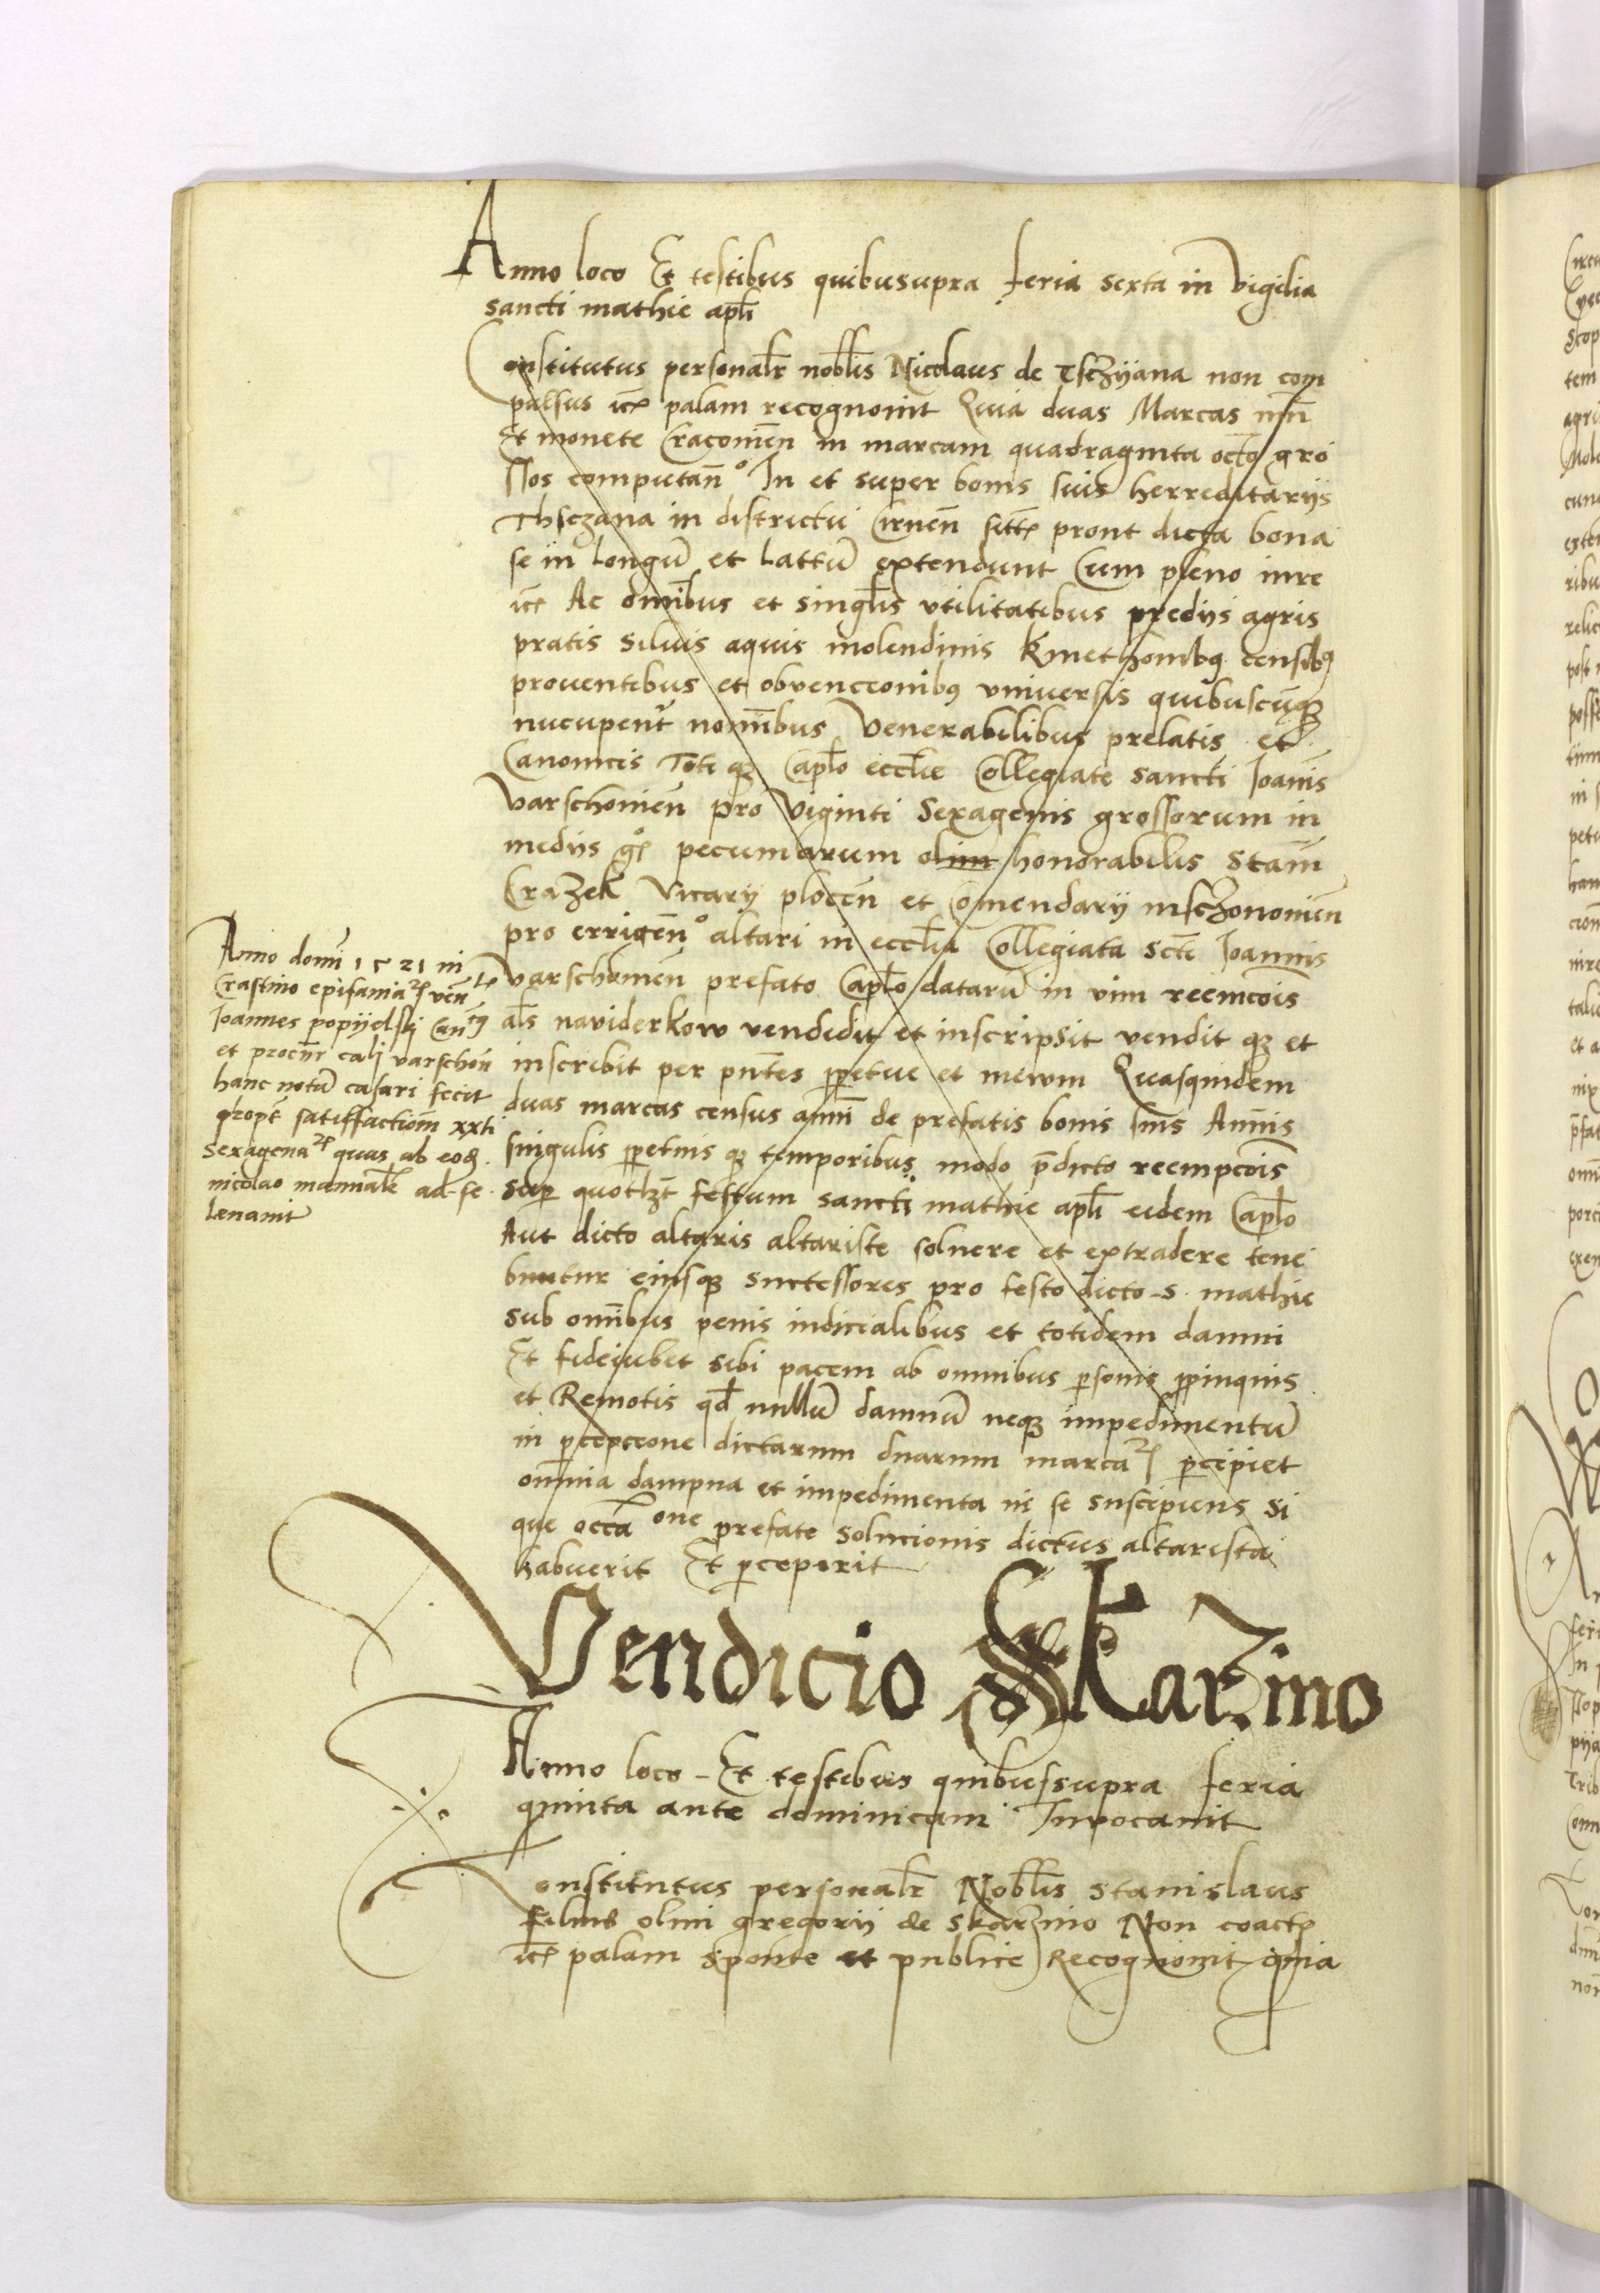 Anno loco Et testibus quibusupra feria sexta in Vigilia
sancti mathie apli
Constitutus personalr noblis Nicolaus de Tschyana non com
pulsus etc palam recognovit Quia duas Marcas nun
Et monete Cracovien in marcam quadraginta octo gro
ssos computan In et super bonis suis herreditariis
Thsczana in districtu Cirnen sitt prout dicta bona
se in longu et lattu extendunt Cum pleno iure
etc Ac omibus et singlis utilitatibus prediis agris
pratis silvis aquis molendinis Kmethonibq censibq
proventibus et obvencionibq universis quibuscuqz
nucupent nomibus Venerabilibus prelatis et
Canonicis Toti qz Caplo ecclie Collegiate sancti Joanis
Varschovien pro Viginti Sexagenis grossorum in
mediis gr pecuniarum olim honorabilis Stani
Crazek Vicarii plocen et Comendarii mschonovien
pro errigen altari in ecclia Collegiata scti Joannis
Varschovien prefato Caplo dataru in vim reemcois
als naviderkow vendidit et inscripsit vendit qz et
inscribit per pntes ppetue et meum Quasquidem
duas marcas census anni de prefatis bonis suis Annis
singulis ppetuis qz temporibus modo pdicto reempcois
sup quotlzt festum sancti mathie apli eidem Caplo
Aut dicto altaris altariste solvere et extradere tene
buntur eiusqz successores pro festo dicto s. mathie
sub omibus penis iudicialibus et totidem damni
Et fideiubet sibi pacem ab omnibus psonis ppinquis
et Remotis qd nullu damnu neqz impedimentu
in pcepcione dictarum duarum marcaR pcipiet
omnia dampna et impedimenta in se suscipiens si
que occa one prefate solucionis dictus altarista
habuerit Et pceperit
Anno domi 1521 in
Crastino epifaniaR ven
Joannes popyelski Can
et procur cali varschovn
hanc nota casari fecit
propt satisffactiom xxti
sexagenaR quas ab eod
nicolao manualr ad se
levavit
Vendicio Skarzino
Anno loco Et testibus quibussupra feria
quinta ante dominicam Invocavit
Constitutus personalr Noblis Stanislaus
filius olim gregorii de Skarzino Non coact
etc palam sponte et publice Recognovit quia